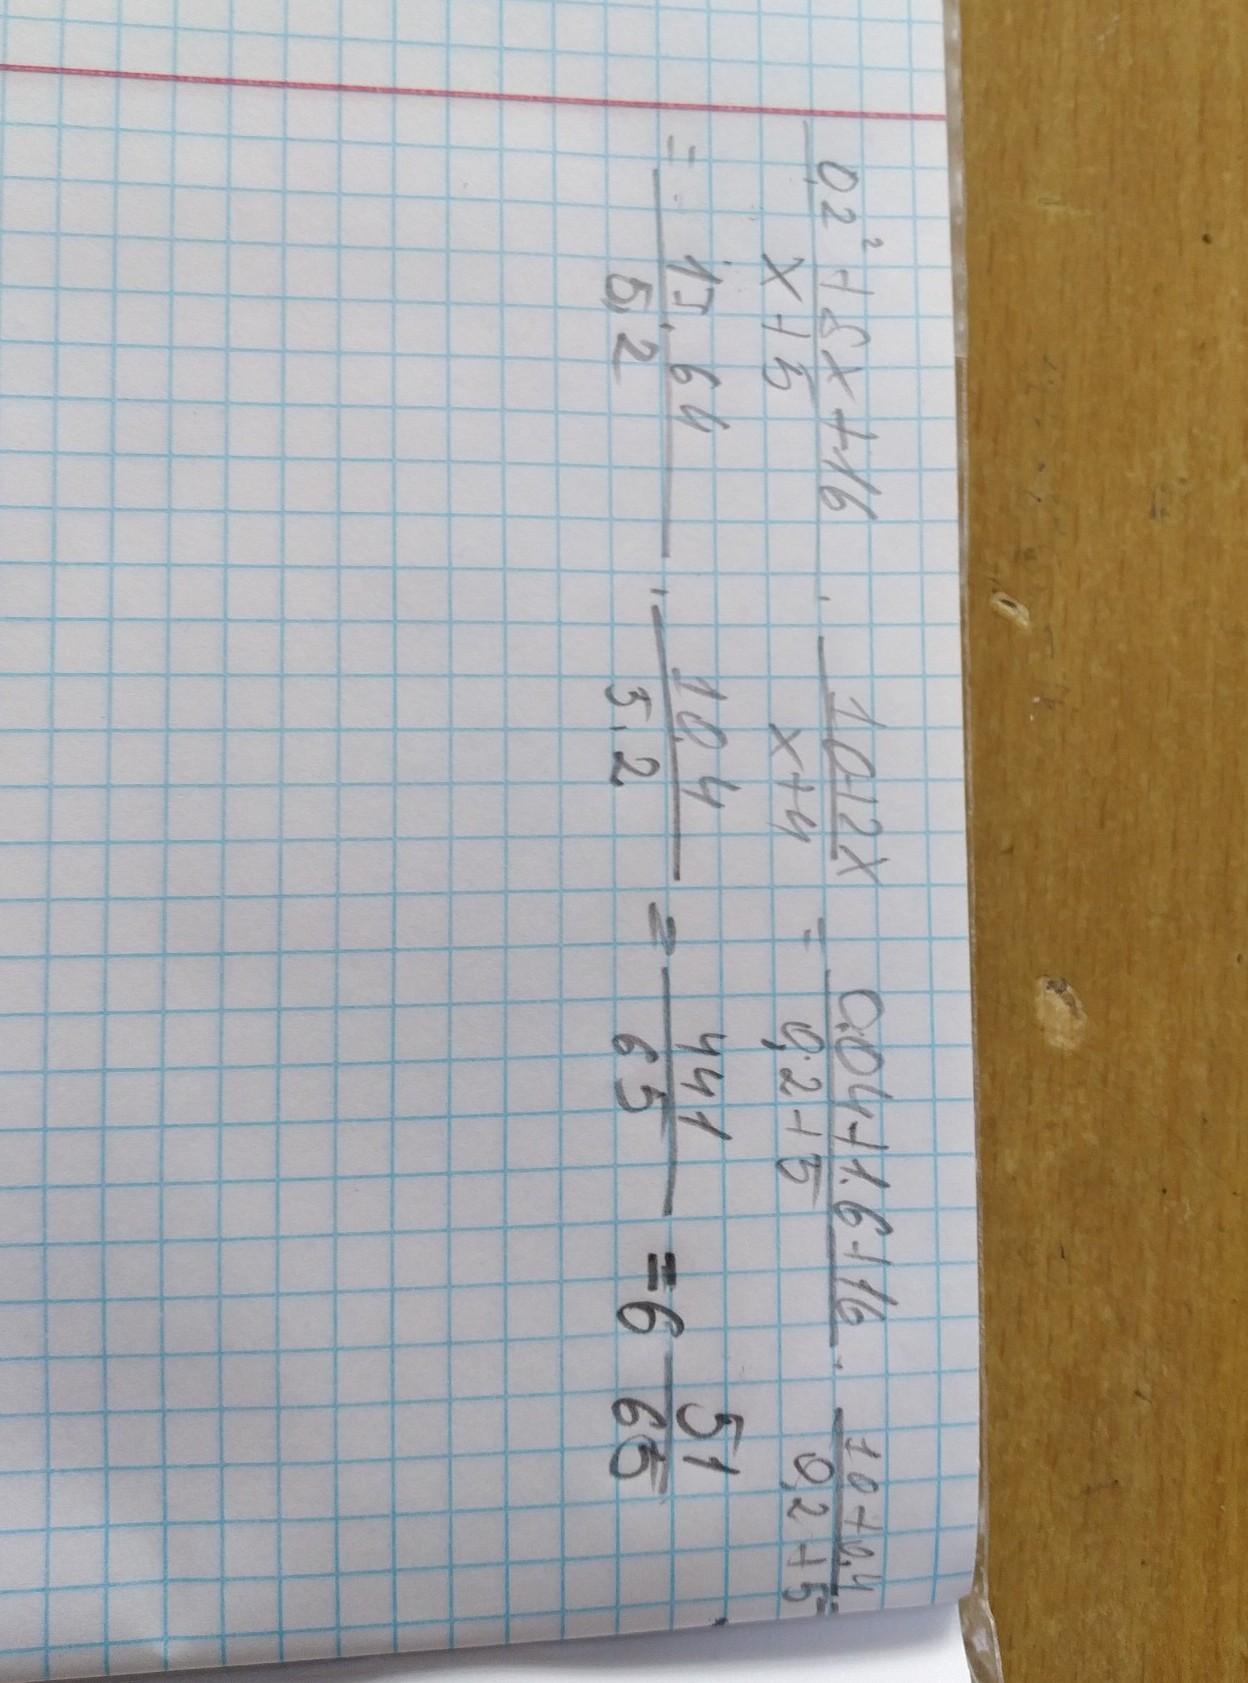 0,2² + 8x + 16 / x + 5 · 10 + 2x / x + 4 = 0,04 + 1,6 + 16 / 0,2 + 5 · 10 + 0,4 / 0,2 + 5 =
= 17,64 / 5,2 · 10,4 / 5,2 = 441 / 65 = 6 51 / 65